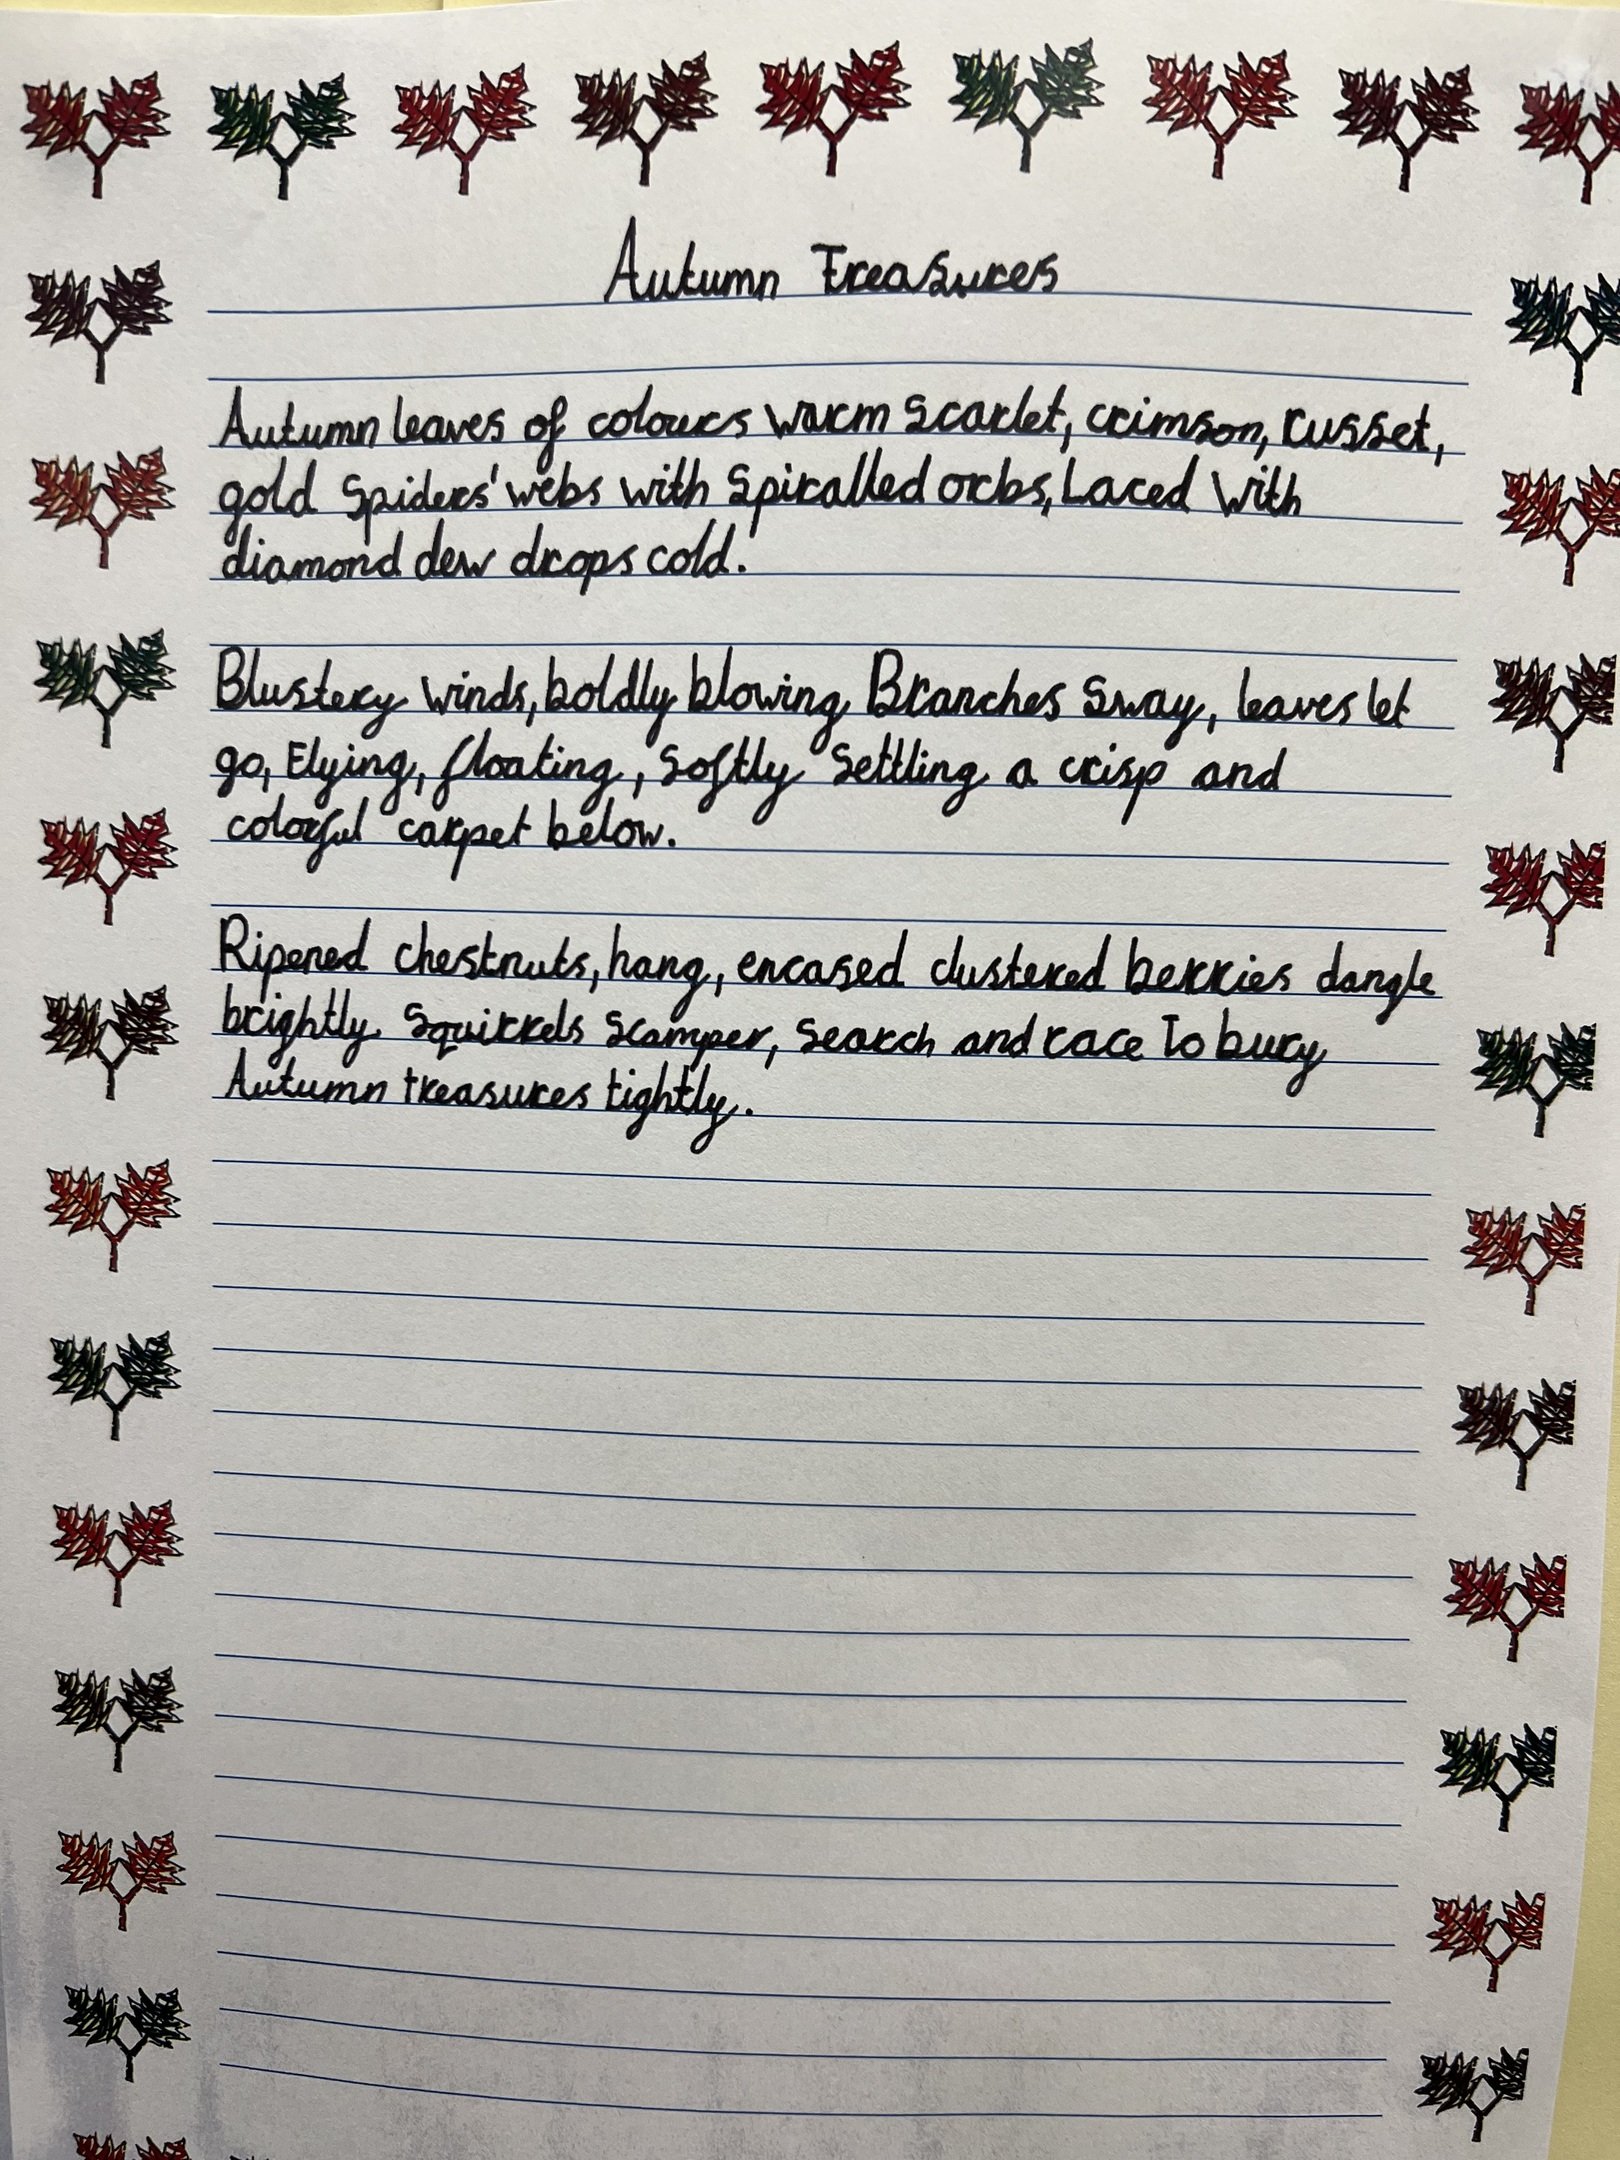 Autumn Treasures
Autumn leaves of colours warm scarlet, crimson, russet,
gold spiders' webs with spiralled orbs, Laced with
diamond dew drops cold.
Blustery winds, boldly blowing Branches sway, leaves let
go, Flying, floating, softly settling a crisp and
colorful carpet below.
Ripened chestnuts, hang, encased clustered berries dangle
brightly squirrels scamper, search and race To bury
Autumn treasures tightly.